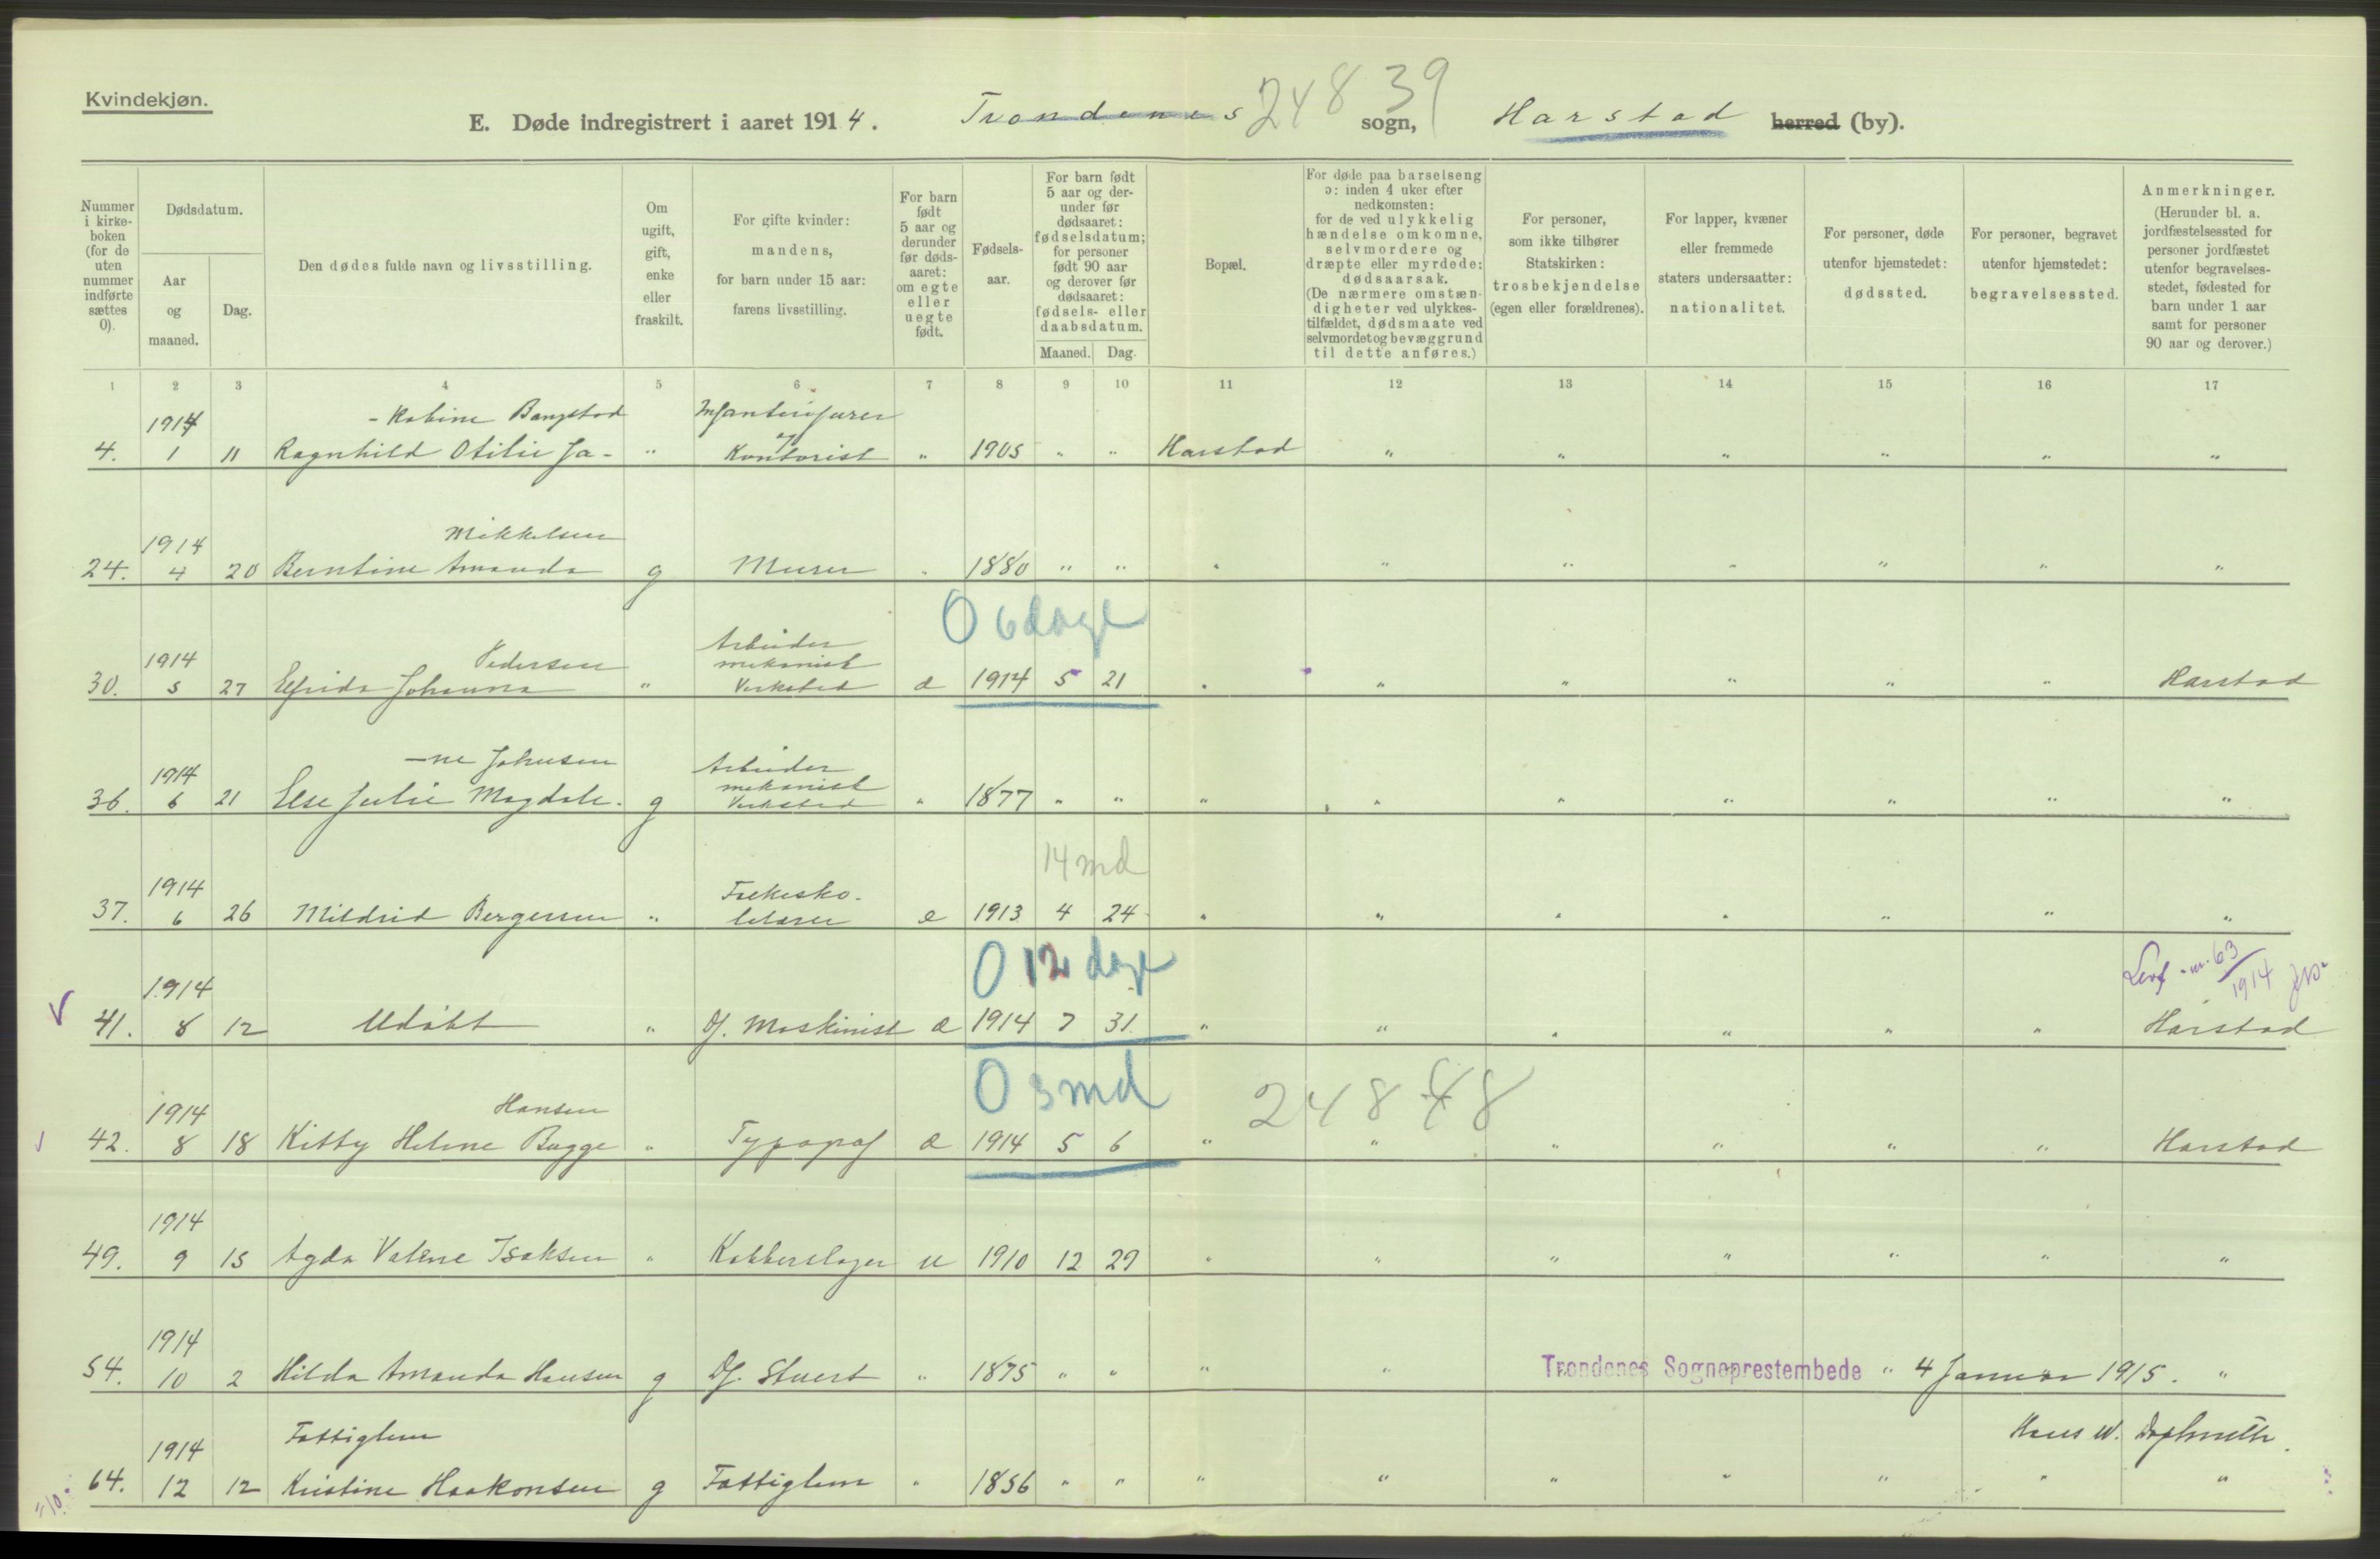 Kvindekjøn.
E. Døde indregistrert i aaret 1914.
Trondenes sogn, Harstad herred (by).
248 39
Nummer i kirkeboken (for de uten nummer indførte sættes 0).
Dødsdatum.
Aar og maaned.
Dag.
Den dødes fulde navn og livsstilling.
Om ugift, gift, enke eller fraskilt.
For gifte kvinder: mandens, for barn under 15 aar: farens livsstilling.
For barn født 5 aar og derunder før dødsaaret: om egte eller uegte født.
Fødselsaar.
For barn født 5 aar og derunder før dødsaaret: fødselsdatum; for personer født 90 aar og derover før dødsaaret: fødsels- eller daabsdatum.
Maaned. Dag.
Bopæl.
For døde paa barselseng ɔ: inden 4 uker efter nedkomsten: for de ved ulykkelig hændelse omkomne, selvmordere og dræpte eller myrdede: dødsaarsak. (De nærmere omstændigheter ved ulykkestilfældet, dødsmaate ved selvmordet og bevæggrund til dette anføres.)
For personer, som ikke tilhører Statskirken: trosbekjendelse (egen eller forældrenes).
For lapper, kvæner eller fremmede staters undersaatter: nationalitet.
For personer, døde utenfor hjemstedet: dødssted.
For personer, begravet utenfor hjemstedet: begravelsessted.
Anmerkninger. (Herunder bl. a. jordfæstelsessted for personer jordfæstet utenfor begravelsesstedet, fødested for barn under 1 aar samt for personer 90 aar og derover.)
1 2 3 4 5 6 7 8 9 10 11 12 13 14 15 16 17
1914 -kobine Bangstad Infanterifurer
og
4. 1 11 Ragnhild Otilie Ja- " Kontorist " 1905 " " Harstad " " " " " "
1914 Mikkelsen
24. 4 20 Berntine Amanda g Murer " 1880 " " " " " " " " "
0 6 dage
1914 Pedersen Arbeider mekanisk
30. 5 27 Elfrida Johanna " Verksted e 1914 5 21 " " " " " " Harstad
1914 -ne Johnsen Arbeider mekanisk
36. 6 21 Else Julie Magdale- g Verksted " 1877 " " " " " " " " "
14 md
1914 Folkesko-
37. 6 26 Mildrid Bergersen " lelærer e 1913 4 24 " " " " " " "
0 12 dage
nr. 63
1914 1914
41. 8 12 Udøbt " Df. Maskinist e 1914 7 31 " " " " " " Harstad
0 3 md 248 48
1914 Hansen
42. 8 18 Kitty Helene Bugge " Typograf e 1914 5 6 " " " " " " Harstad
1914
49. 9 15 Agda Valene Isaksen " Kobberslager u 1910 12 29 " " " " " " "
1914
54. 10 2 Hilda Amanda Hansen g Df. Stuert " 1875 " " " " Trondenes Sogneprestembede " 4 Januar 1915. "
1914 Fattiglem Hans W.
64. 12 12 Kristine Haakonsen g Fattiglem " 1856 " " " " " " " " "
"10.